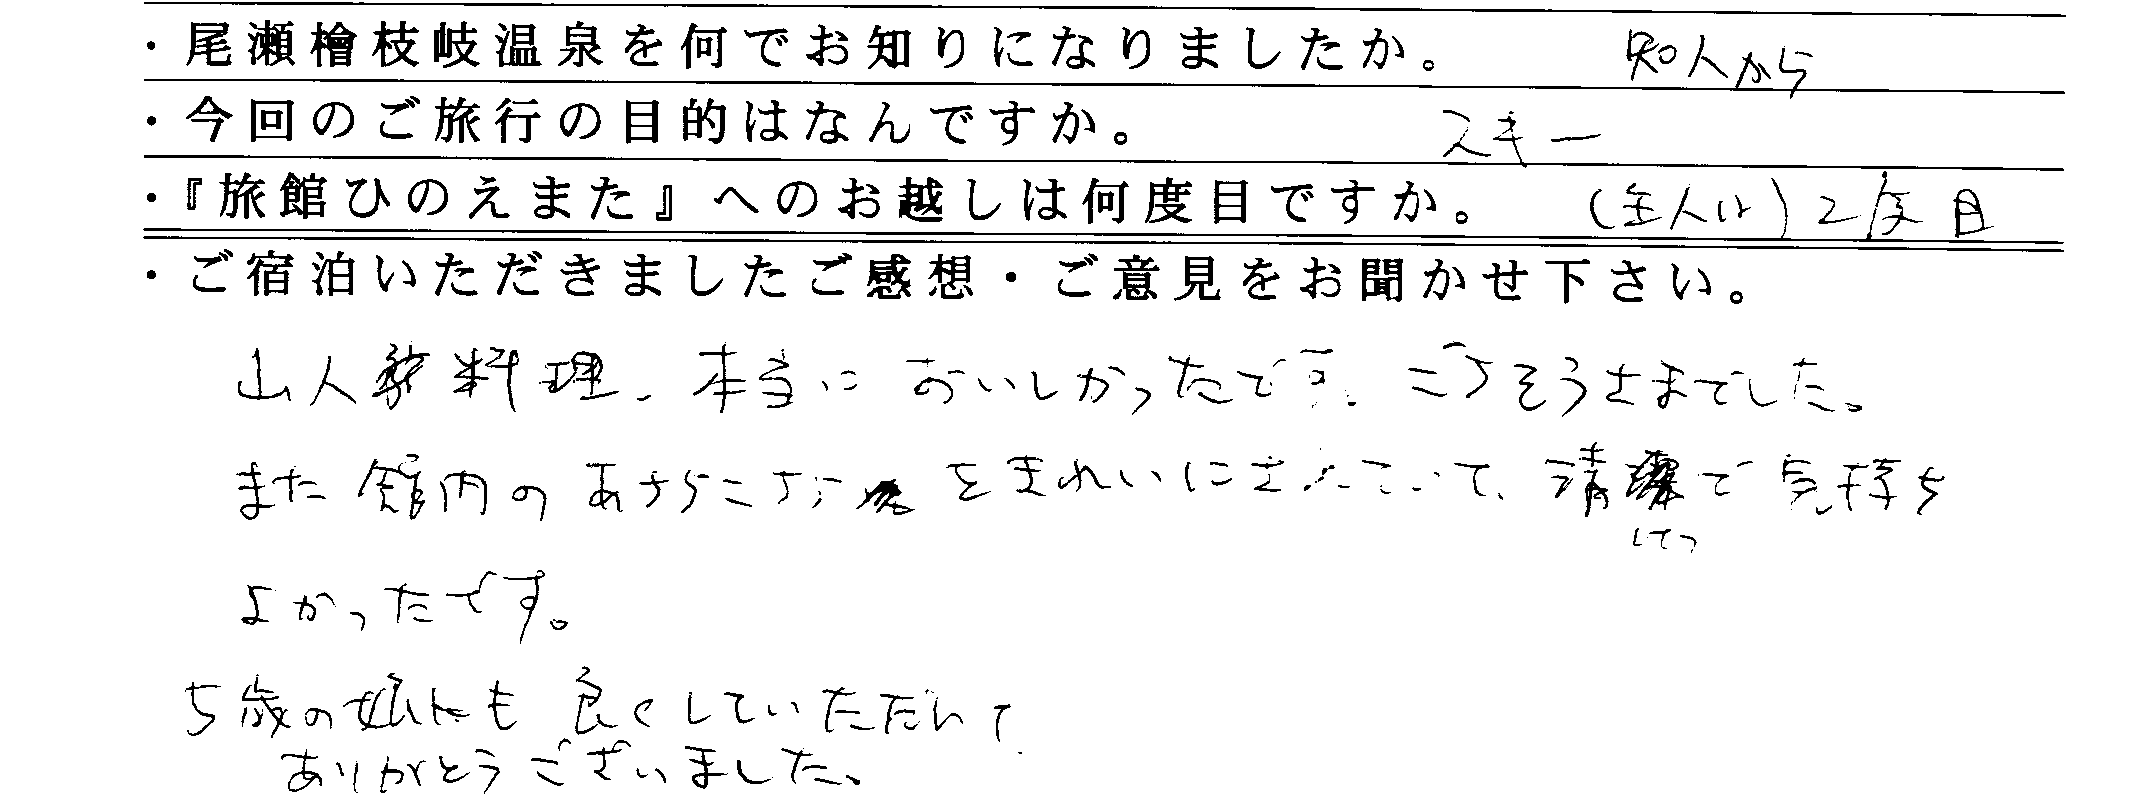 ・尾瀬檜枝岐温泉を何でお知りになりましたか。 知人から
・今回のご旅行の目的はなんですか。 スキー
・『旅館ひのえまた』へのお越しは何度目ですか。 (主人は)2度目
・ご宿泊いただきましたご感想・ご意見をお聞かせ下さい。
山人料理、本当においしかったです。ごちそうさまでした。
また館内のあちらこちらをきれいにされていて、清潔で気持ち
けつ
よかったです。
5歳の娘にも良くしていただいて
ありがとうございました。